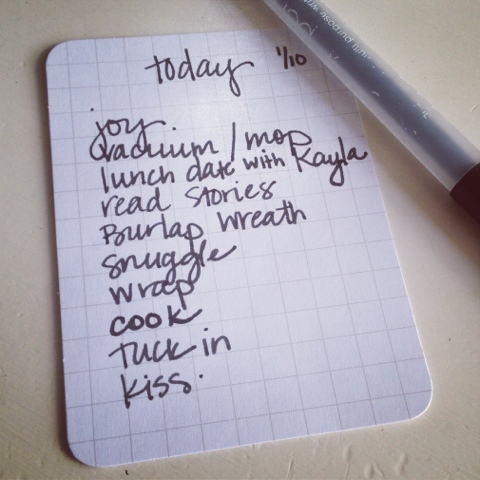 today 1/10
joy
vacuum / mop
lunch date with Kayla
read stories
Burlap wreath
snuggle
wrap
cook
tuck in
kiss.